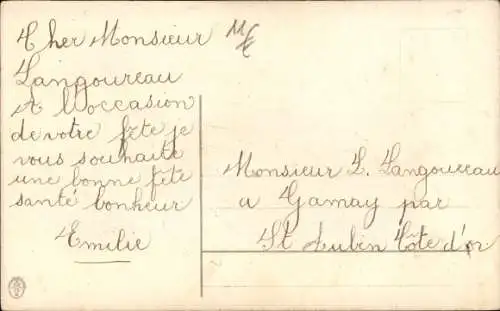 Cher Monsieur
Langoureau
A l'occasion
de votre fete je
vous souhaite
une bonne fète
santé bonheur
Emilie
Monsieur L. Langoureau
a Gamay par
St Aubin Côte d'or